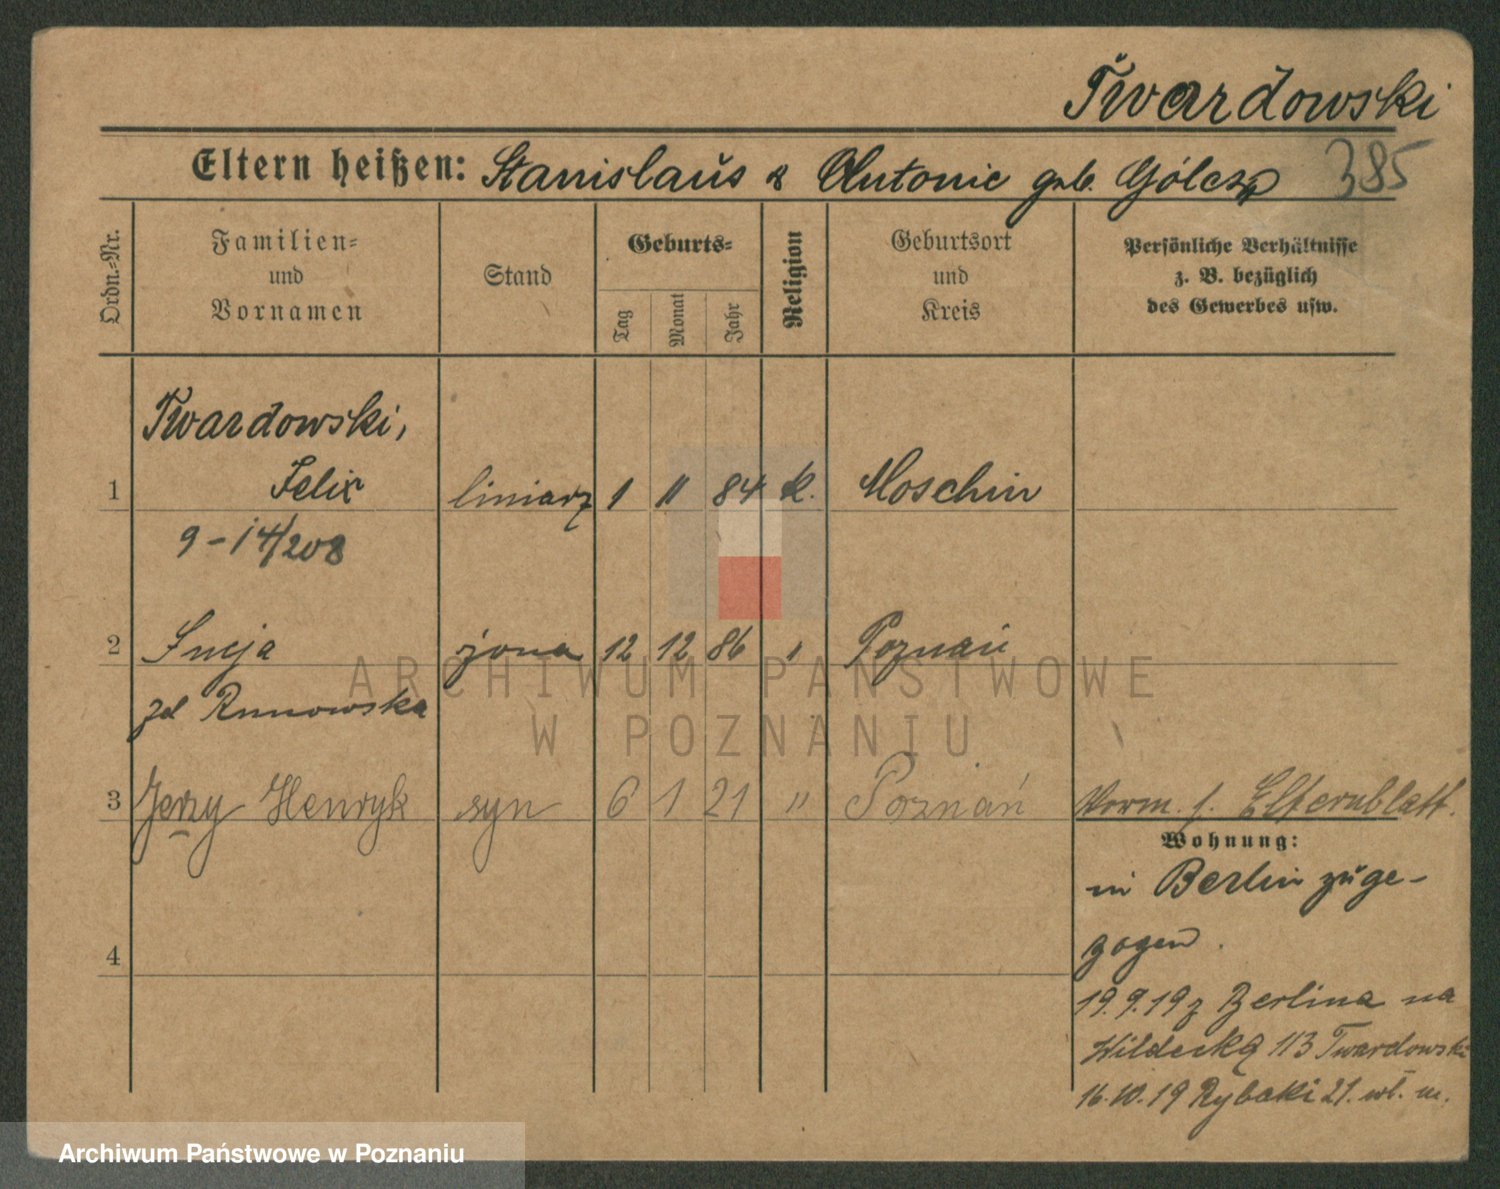 Twardowski
Eltern heißen: Stanislaus & Antonie geb. Gólcz
385
Ordn.-Nr.
Familien-
und
Vornamen
Stand
Geburts-
Tag
Monat
Jahr
Religion
Geburtsort
und
Kreis
Persönliche Verhältnisse
z. B. bezüglich
des Gewerbes usw.
Twardowski,
1 Felix liniarz 1 11 84 k. Moschin
9-14/208
2 Łucja żona 12 12 86 " Poznań
zd Runowska
3 Jerzy Henryk syn 6 1 21 " Poznań
Vorm. s. Elternblatt.
Wohnung:
in Berlin zuge-
zogen.
4
19.9.19 z Berlina na
Wildecką 113 Twardowski
16.10.19 Rybaki 21. wł. m.
ARCHIWUM PAŃSTWOWE
W POZNANIU
Archiwum Państwowe w Poznaniu